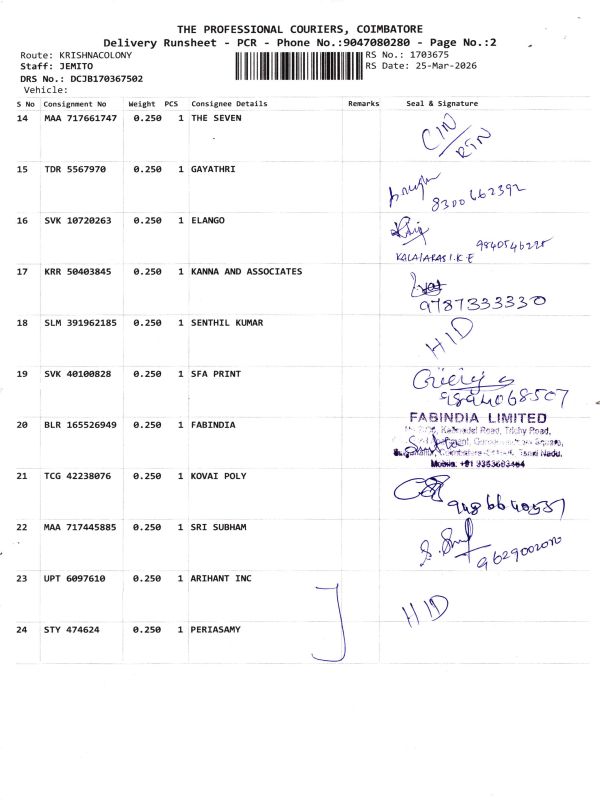 THE PROFESSIONAL COURIERS, COIMBATORE
Delivery Runsheet - PCR - Phone No.:9047080280 - Page No.:2
Route: KRISHNACOLONY RS No.: 1703675
Staff: JEMITO RS Date: 25-Mar-2026
DRS No.: DCJB170367502
Vehicle:
S No Consignment No Weight PCS Consignee Details Remarks Seal & Signature
14 MAA 717661747 0.250 1 THE SEVEN
CIN
RTN
15 TDR 5567970 0.250 1 GAYATHRI
8300662392
16 SVK 10720263 0.250 1 ELANGO
9840546225
KALAIARASI.K.E
17 KRR 50403845 0.250 1 KANNA AND ASSOCIATES
9787333330
18 SLM 391962185 0.250 1 SENTHIL KUMAR
HID
19 SVK 40100828 0.250 1 SFA PRINT
9894068507
20 BLR 165526949 0.250 1 FABINDIA
FABINDIA LIMITED
Road, Trichy Road,
Square,
Tamil Nadu.
Mobile: +91
21 TCG 42238076 0.250 1 KOVAI POLY
9486640537
22 MAA 717445885 0.250 1 SRI SUBHAM
9629002010
23 UPT 6097610 0.250 1 ARIHANT INC
HID
24 STY 474624 0.250 1 PERIASAMY